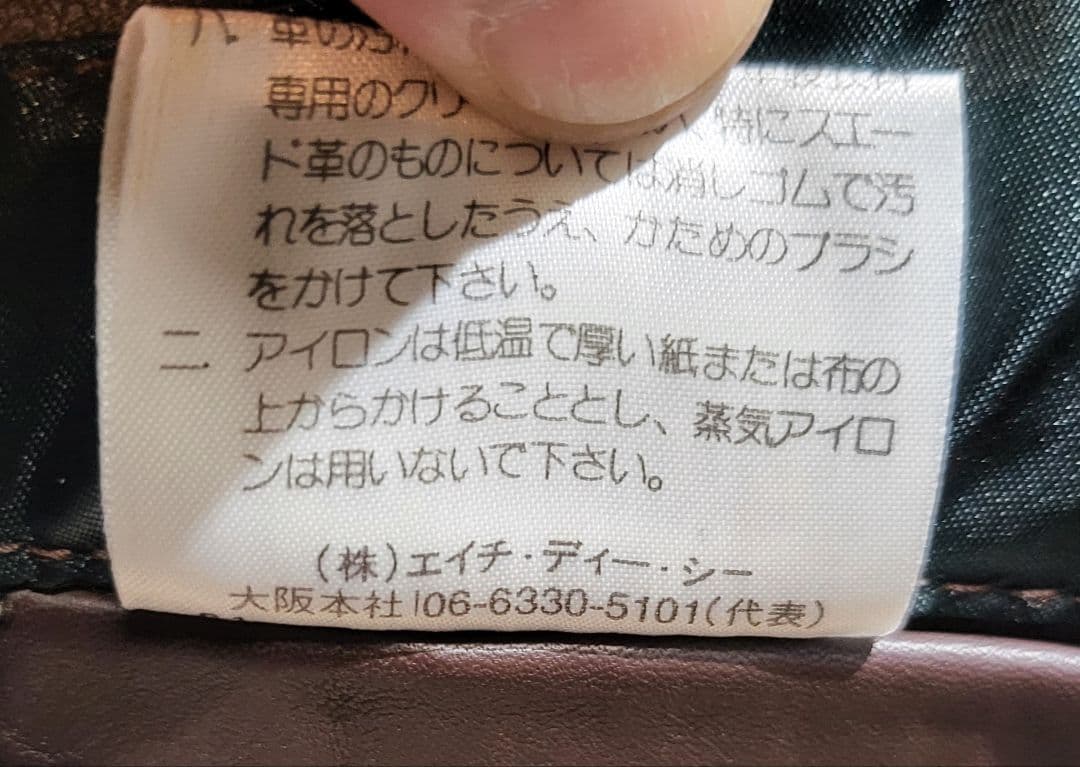 ハ. 革の汚
専用のクリ 特にスエー
ド革のものについては消しゴムで汚
れを落としたうえ、かためのブラシ
をかけて下さい。
二. アイロンは低温で厚い紙または布の
上からかけることとし、蒸気アイロ
ンは用いないで下さい。
(株)エイチ・ディー・シー
大阪本社 06-6330-5101(代表)